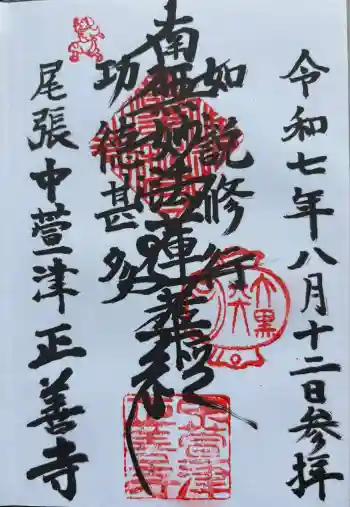 令和七年八月十二日参拝
如説修行
南無妙法蓮華経
功徳甚多
尾張中萱津正善寺
大黒